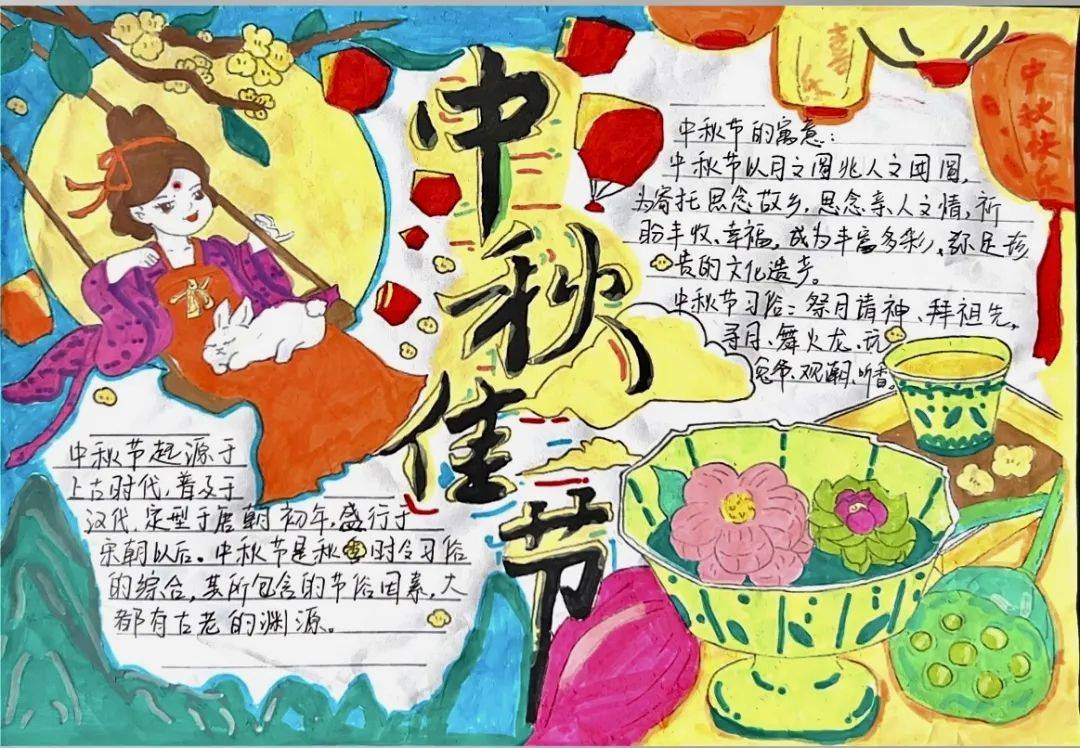 中秋佳节
喜乐
中秋快乐
中秋节的寓意:
中秋节以月之圆兆人之团圆,
为寄托思念故乡,思念亲人之情,祈
盼丰收、幸福,成为丰富多彩、弥足珍
贵的文化遗产。
中秋节习俗:祭月请神、拜祖先,
寻月、舞火龙、玩
兔爷、观潮、听香。
中秋节起源于
上古时代,普及于
汉代,定型于唐朝初年,盛行于
宋朝以后。中秋节是秋季时令习俗
的综合,其所包含的节俗因素,大
都有古老的渊源。